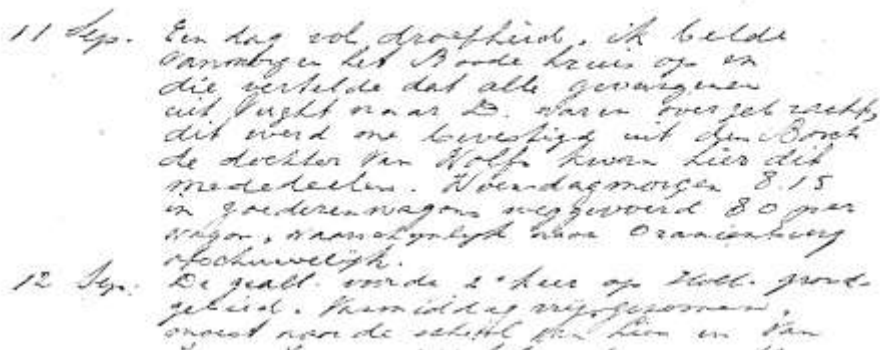 11 Sep. Een dag vol droefheid, ik belde
vanmorgen het Roode kruis op en
die vertelde dat alle gevangenen
uit Vught naar D. waren overgebracht,
dit werd me bevestigd uit den Bosch
de dochter van Wolfs kwam hier dit
mededeelen. Woensdagmorgen 8.15
in goederenwagons weggevoerd 80 per
wagon, waarschynlyk naar Oranienburg
afschuwelijk.
12 Sep. De geall. voor de 2e keer op Holl. grond-
gebied. Vanmiddag vrijgenomen,
moest naar de school van en van